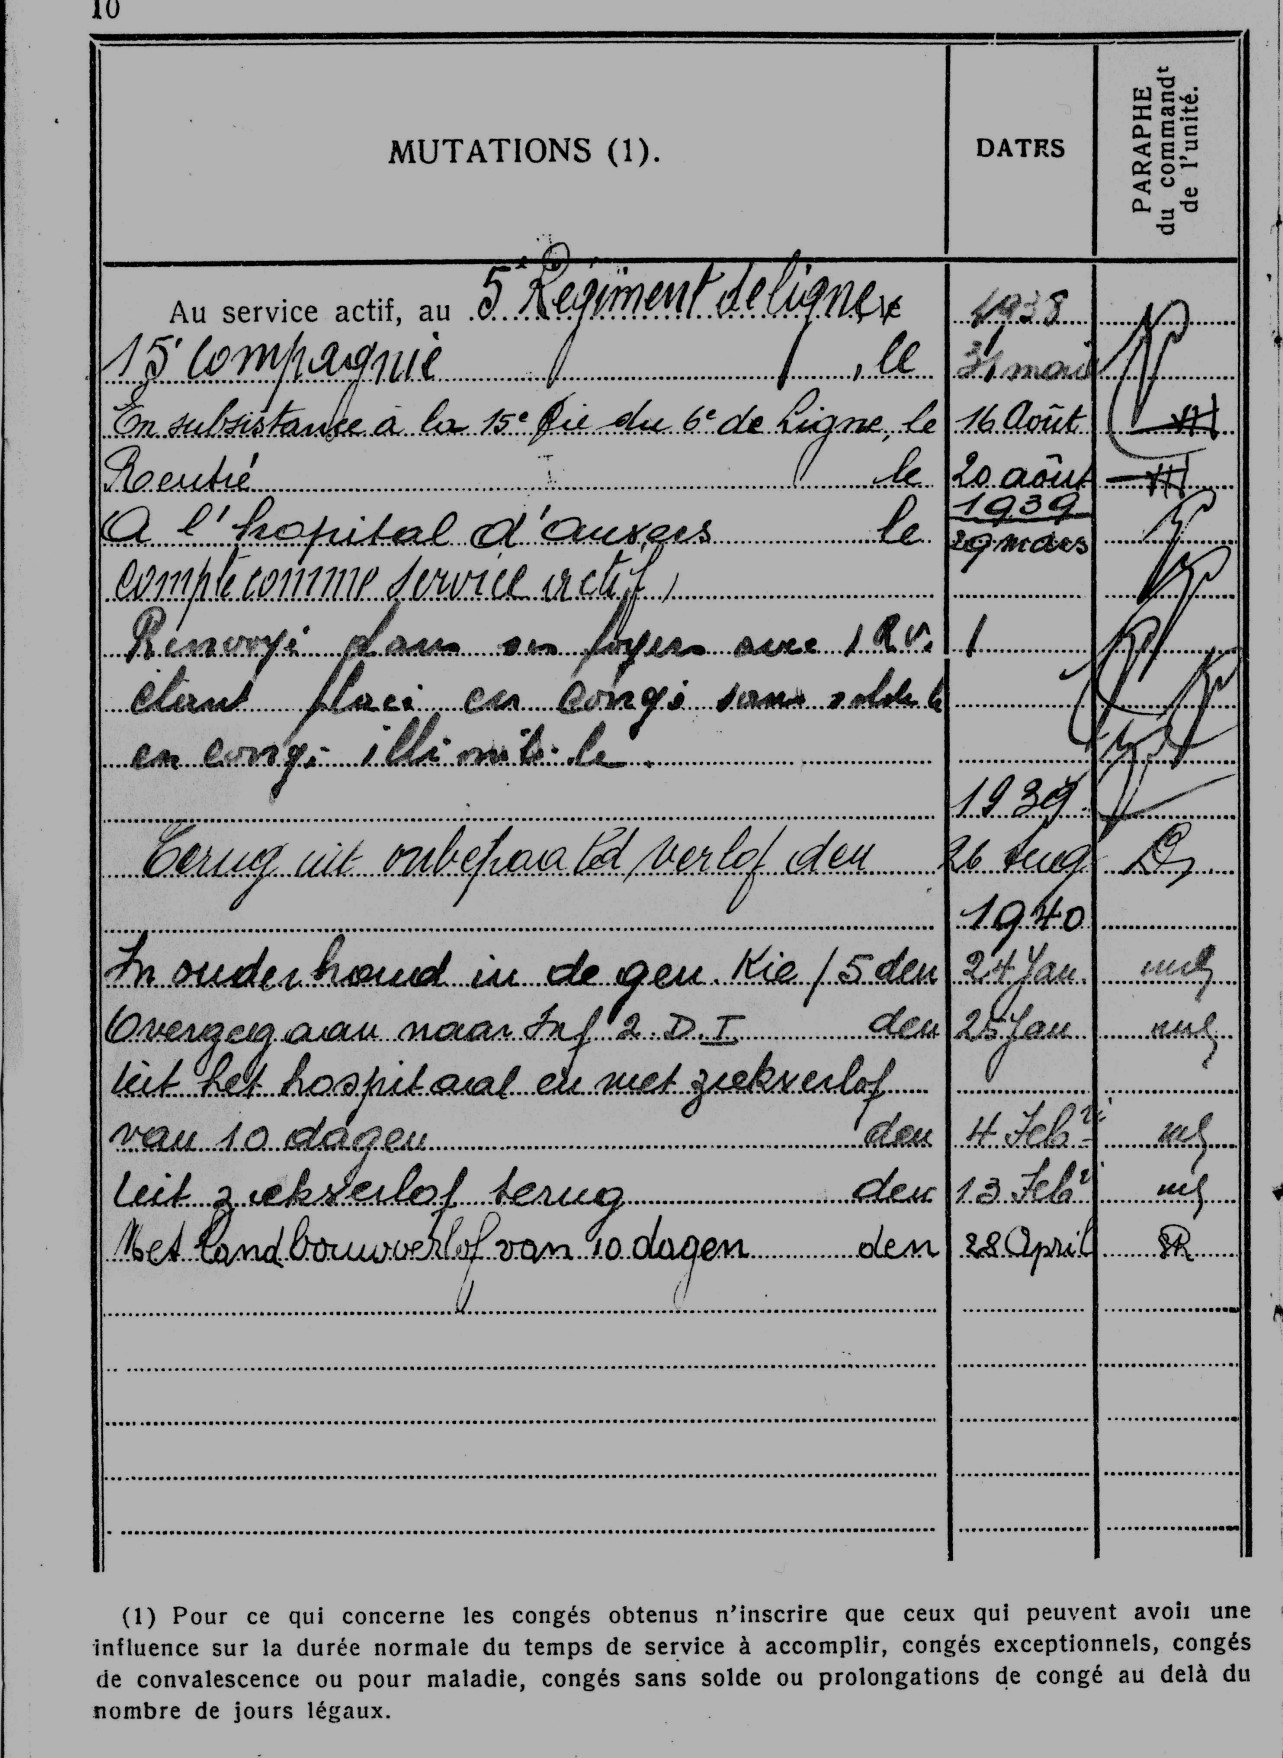 10
MUTATIONS (1).
DATES
PARAPHE
du commandt
de l'unité.
Au service actif, au 5e Régiment de ligne 1938
15e Compagnie , le 31 mai
En subsistance à la 15e Cie du 6e de Ligne, le 16 Août
Rentré le 20 août
1939
A l'hopital d'anvers le 29 mars
compte comme service actif
Renvoyé dans ses foyers avec 1 R.V. 1
étant placé en congé sans solde le
en congé illimité le
1939
Terug uit onbepaald verlof den 26 Aug
1940
In onderhoud in de gen. Kie / 5 den 24 Jan.
Overgegaan naar Inf 2. D.I. den 25 Jan
Uit het hospitaal en met ziekverlof
van 10 dagen den 4 Feb
Uit ziekverlof terug den 13 Feb
Met landbouwverlof van 10 dagen den 28 April
(1) Pour ce qui concerne les congés obtenus n'inscrire que ceux qui peuvent avoir une
influence sur la durée normale du temps de service à accomplir, congés exceptionnels, congés
de convalescence ou pour maladie, congés sans solde ou prolongations de congé au delà du
nombre de jours légaux.